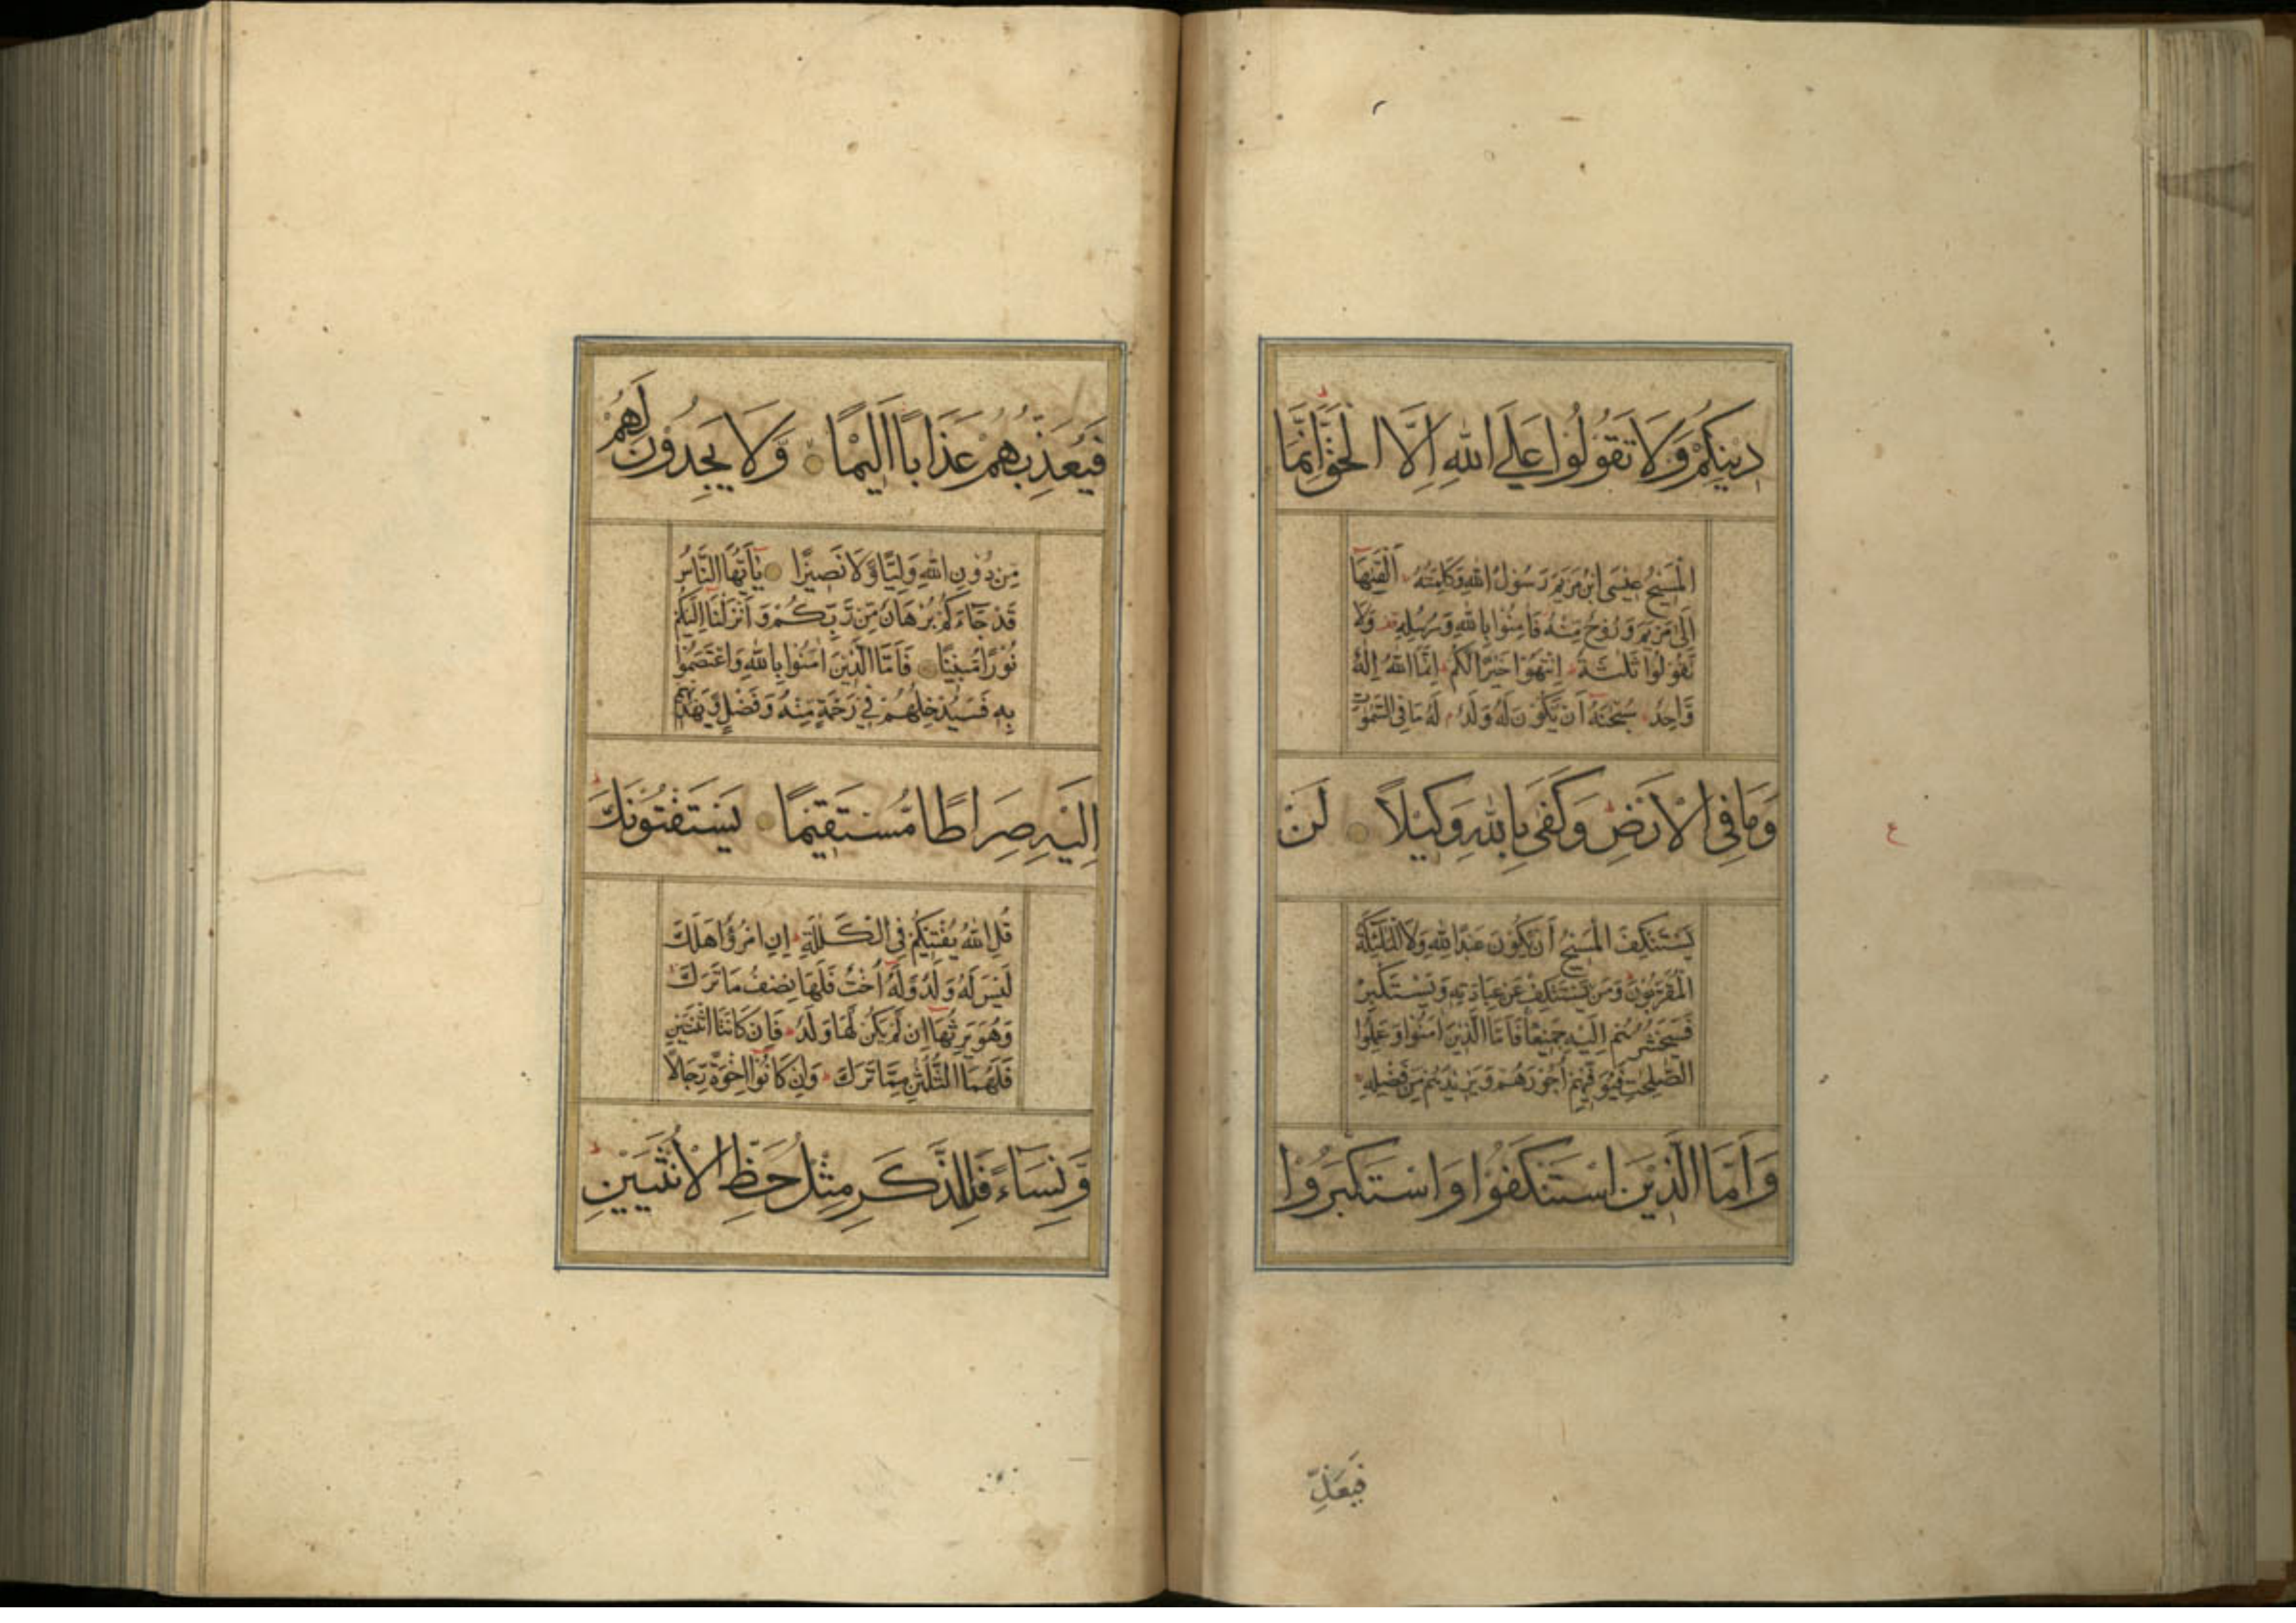 دِيْنِكُمْ وَلَا تَقُوْلُوْا عَلَى اللهِ اِلَّا الْحَقَّ اِنَّمَا
الْمَسِيْحُ عِيْسَى ابْنُ مَرْيَمَ رَسُوْلُ اللهِ وَكَلِمَتُهُ اَلْقٰىهَا
اِلٰى مَرْيَمَ وَرُوْحٌ مِّنْهُ فَاٰمِنُوْا بِاللهِ وَرُسُلِهٖ وَلَا
تَقُوْلُوْا ثَلٰثَةٌ اِنْتَهُوْا خَيْرًا لَّكُمْ اِنَّمَا اللهُ اِلٰهٌ
وَّاحِدٌ سُبْحٰنَهُ اَنْ يَّكُوْنَ لَهُ وَلَدٌ لَهُ مَا فِى السَّمٰوٰتِ
وَمَا فِى الْاَرْضِ وَكَفٰى بِاللهِ وَكِيْلًا لَنْ
يَّسْتَنْكِفَ الْمَسِيْحُ اَنْ يَّكُوْنَ عَبْدًا لِلّٰهِ وَلَا الْمَلٰٓئِكَةُ
الْمُقَرَّبُوْنَ وَمَنْ يَّسْتَنْكِفْ عَنْ عِبَادَتِهٖ وَيَسْتَكْبِرْ
فَسَيَحْشُرُهُمْ اِلَيْهِ جَمِيْعًا فَاَمَّا الَّذِيْنَ اٰمَنُوْا وَعَمِلُوا
الصّٰلِحٰتِ فَيُوَفِّيْهِمْ اُجُوْرَهُمْ وَيَزِيْدُهُمْ مِّنْ فَضْلِهٖ
وَاَمَّا الَّذِيْنَ اسْتَنْكَفُوْا وَاسْتَكْبَرُوْا
ع
فَيُعَذِّ
فَيُعَذِّبُهُمْ عَذَابًا اَلِيْمًا وَّلَا يَجِدُوْنَ لَهُمْ
مِّنْ دُوْنِ اللهِ وَلِيًّا وَّلَا نَصِيْرًا يٰٓاَيُّهَا النَّاسُ
قَدْ جَآءَكُمْ بُرْهَانٌ مِّنْ رَّبِّكُمْ وَاَنْزَلْنَا اِلَيْكُمْ
نُوْرًا مُّبِيْنًا فَاَمَّا الَّذِيْنَ اٰمَنُوْا بِاللهِ وَاعْتَصَمُوْا
بِهٖ فَسَيُدْخِلُهُمْ فِيْ رَحْمَةٍ مِّنْهُ وَفَضْلٍ وَّيَهْدِيْهِمْ
اِلَيْهِ صِرَاطًا مُّسْتَقِيْمًا يَسْتَفْتُوْنَكَ
قُلِ اللهُ يُفْتِيْكُمْ فِى الْكَلٰلَةِ اِنِ امْرُؤٌا هَلَكَ
لَيْسَ لَهُ وَلَدٌ وَّلَهُ اُخْتٌ فَلَهَا نِصْفُ مَا تَرَكَ
وَهُوَ يَرِثُهَا اِنْ لَّمْ يَكُنْ لَّهَا وَلَدٌ فَاِنْ كَانَتَا اثْنَتَيْنِ
فَلَهُمَا الثُّلُثٰنِ مِمَّا تَرَكَ وَاِنْ كَانُوْا اِخْوَةً رِّجَالًا
وَّنِسَآءً فَلِلذَّكَرِ مِثْلُ حَظِّ الْاُنْثَيَيْنِ